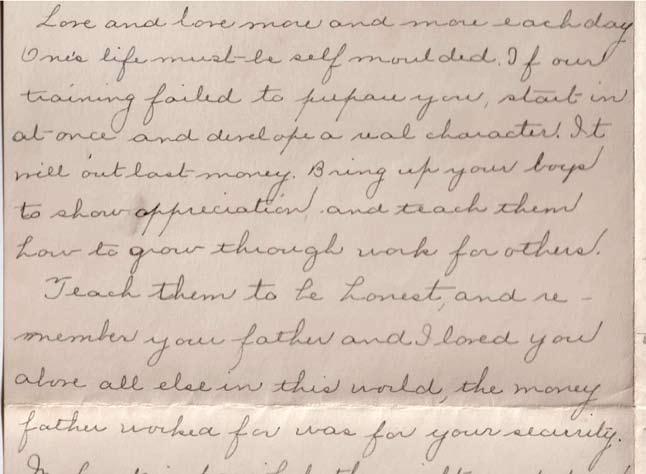 Love and love more and more each day
One's life must be self moulded. If our
training failed to prepare you, start in
at once and develope a real character. It
will outlast money. Bring up your boys
to show appreciation and teach them
how to grow through work for others.
Teach them to be honest, and re-
member your father and I loved you
above all else in this world, the money
father worked for was for your security.